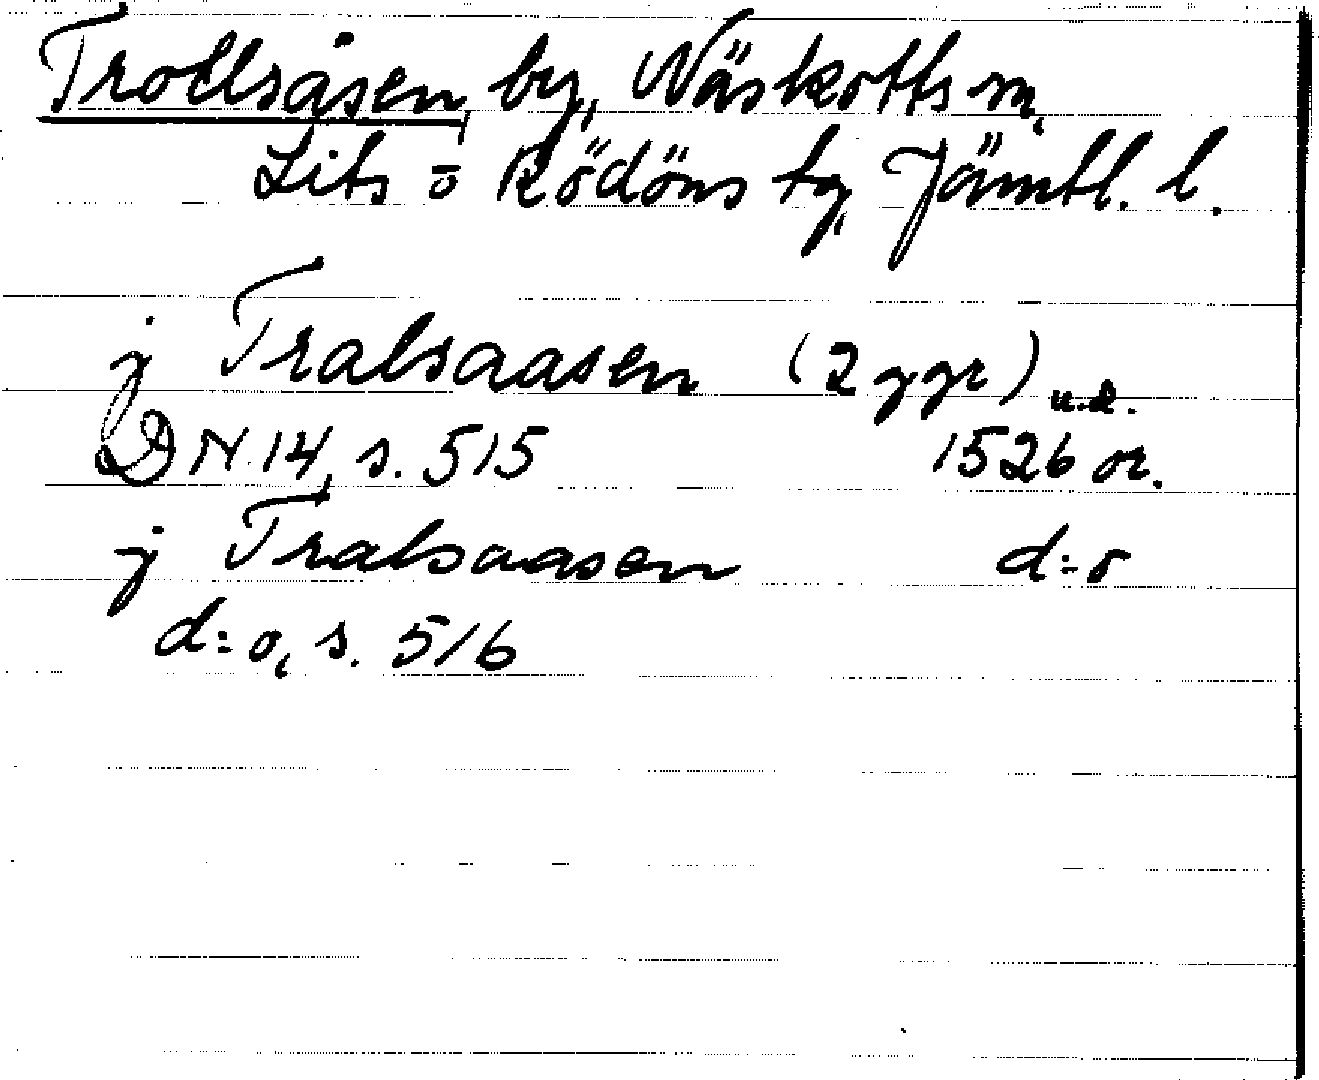 Trollsåsen, by, Näskotts sn,
Lits o Rödöns tg, Jämtl. l.
j Tralsaasen (2 ggr) u.d.
DN. 14, s. 515 1526 or.
j Tralsaasen d:o
d:o, s. 516